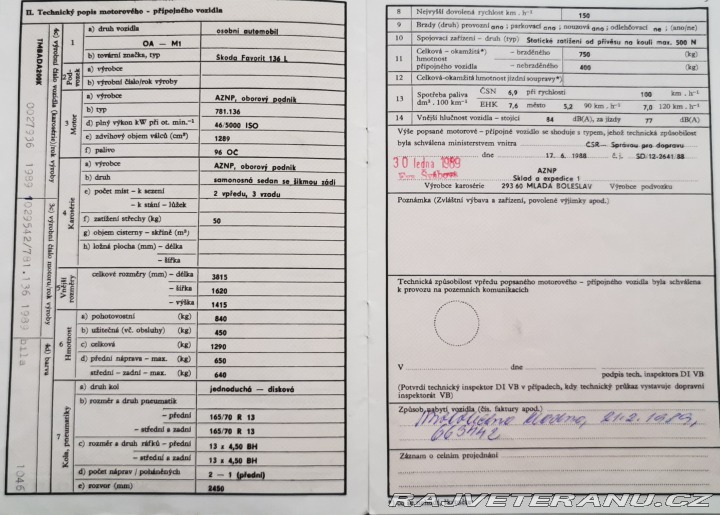 II. Technický popis motorového – přípojného vozidla
1
a) druh vozidla osobní automobil
OA – M1
b) tovární značka, typ Škoda Favorit 136 L
Pod-
vozek
a) výrobce
b) výrobní číslo/rok výroby
3
Motor
a) výrobce AZNP, oborový podnik
b) typ 781.136
d) plný výkon kW při ot. min.⁻¹ 46/5000 ISO
e) zdvihový objem válců (cm³) 1289
f) palivo 96 OČ
4
Karosérie
a) výrobce AZNP, oborový podnik
b) druh samonosná sedan se šikmou zádí
e) počet míst – k sezení 2 vpředu, 3 vzadu
– k stání – lůžek
f) zatížení střechy (kg) 50
g) objem cisterny – skříně (m³)
h) ložná plocha (mm) – délka
– šířka
5
Vnější
rozměry
celkové rozměry (mm) – délka 3815
– šířka 1620
– výška 1415
6
Hmotnost
a) pohotovostní (kg) 840
b) užitečná (vč. obsluhy) (kg) 450
c) celková (kg) 1290
d) přední náprava – max. (kg) 650
střední – zadní – max. (kg) 640
7
Kola, pneumatiky
a) druh kol jednoduchá — disková
b) rozměr a druh pneumatik
– přední 165/70 R 13
– střední a zadní 165/70 R 13
c) rozměr a druh ráfků – přední 13 x 4,50 BH
– střední a zadní 13 x 4,50 BH
d) počet náprav / poháněných 2 — 1 (přední)
e) rozvor (mm) 2450
4c) výrobní číslo (karosérie)/rok výroby
TMBADA200K
0027936 1989
3c) výrobní číslo motoru/rok výroby
1029542/781.136 1989
4d) barva
bílá
1045
8 Nejvyšší dovolená rychlost km . h⁻¹ 150
9 Brzdy (druh) provozní ano ; parkovací ano ; nouzová ano ; odlehčovací ne ; (ano/ne)
10 Spojovací zařízení – druh (typ) Statické zatížení od přívěsu na kouli max. 500 N
11
Celková – okamžitá*) – brzděného 750 (kg)
hmotnost
přípojného vozidla – nebrzděného 400 (kg)
12 Celková-okamžitá hmotnost jízdní soupravy*)
13
Spotřeba paliva ČSN 6,9 při rychlosti 100 km . h⁻¹
dm³ . 100 km⁻¹ EHK 7,6 město 5,2 90 km . h⁻¹ 7,0 120 km . h⁻¹
14 Vnější hlučnost vozidla – stojící 84 dB(A), za jízdy 77 dB(A)
Výše popsané motorové – přípojné vozidlo se shoduje s typem, jehož technická způsobilost
byla schválena ministerstvem vnitra ČSR— Správou pro dopravu
30 ledna 1989 dne 17. 6. 1988 č. j. SD/12-2641/88
AZNP
Sklad a expedice 1
Výrobce karosérie 293 60 MLADÁ BOLESLAV Výrobce podvozku
Poznámka (Zvláštní výbava a zařízení, povolené výjimky apod.)
Technická způsobilost vpředu popsaného motorového – přípojného vozidla byla schválena
k provozu na pozemních komunikacích
V dne
podpis tech. inspektora DI VB
(Potvrdí technický inspektor DI VB v případech, kdy technický průkaz vystavuje dopravní
inspektorát VB)
Způsob nabytí vozidla (čís. faktury apod.)
21.2.1989,
663442
Záznam o celním projednání
RAJVETERANU.CZ